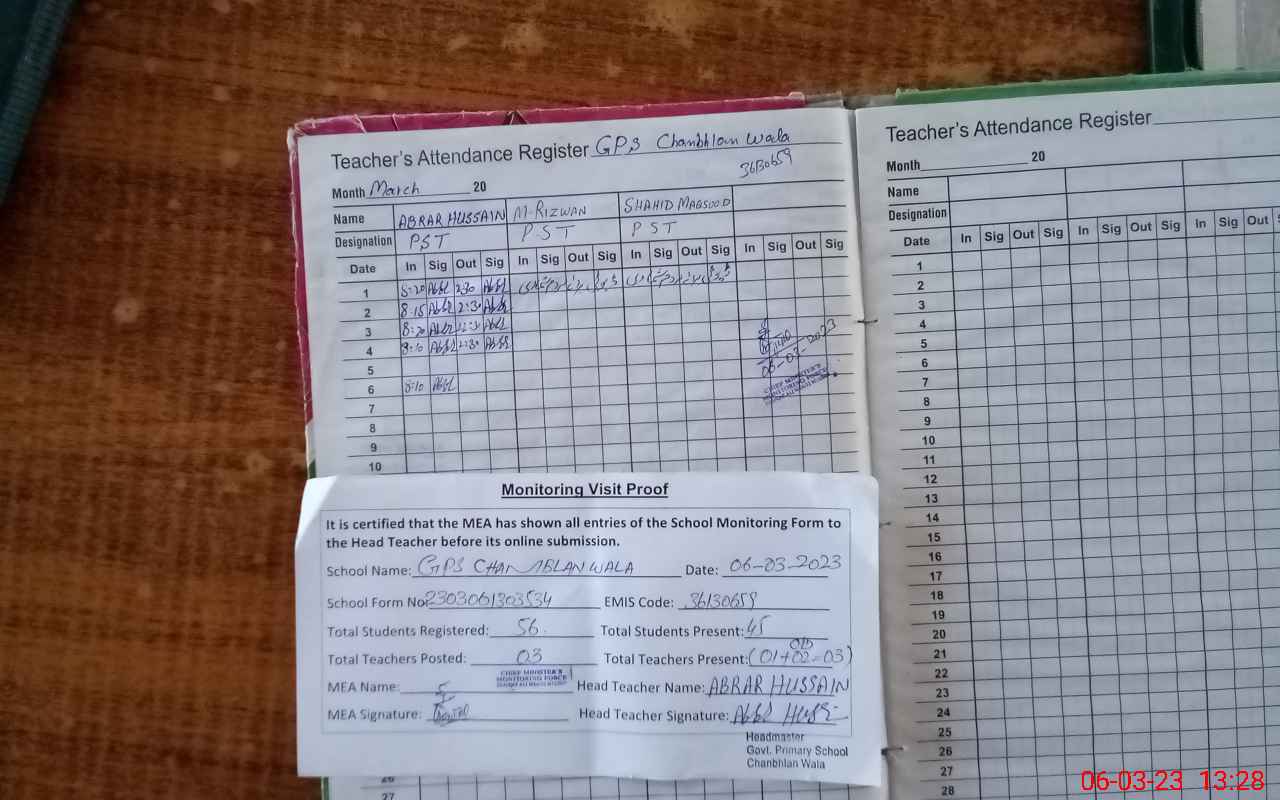 Teacher's Attendance Register GPS Chanbhlan Wala
36130659
Month March 20
Name ABRAR HUSSAIN M-RIZWAN SHAHID MAQSOOD
Designation PST PST PST
Date In Sig Out Sig In Sig Out Sig In Sig Out Sig In Sig Out Sig
1 8:20 2:30
2 8:15 2:30
3 8:20
4 8:10 2:30
5
6 8:10
7
8
9
10
06-03-2023
CHIEF MINISTER'S
MONITORING FORCE
Monitoring Visit Proof
It is certified that the MEA has shown all entries of the School Monitoring Form to
the Head Teacher before its online submission.
School Name: GPS CHANBLAN WALA Date: 06-03-2023
School Form No: 2303061303534 EMIS Code: 36130659
Total Students Registered: 56 Total Students Present: 45
Total Teachers Posted: 03 Total Teachers Present: (01+02=03)
CHIEF MINISTER'S
MONITORING FORCE
MEA Name: Head Teacher Name: ABRAR HUSSAIN
MEA Signature: Head Teacher Signature:
Headmaster
Govt. Primary School
Chanbhlan Wala
26
27
Teacher's Attendance Register
Month 20
Name
Designation
Date In Sig Out Sig In Sig Out Sig In Sig Out
1
2
3
4
5
6
7
8
9
10
11
12
13
14
15
16
17
18
19
20
21
22
23
24
25
26
27
28
06-03-23 13:28